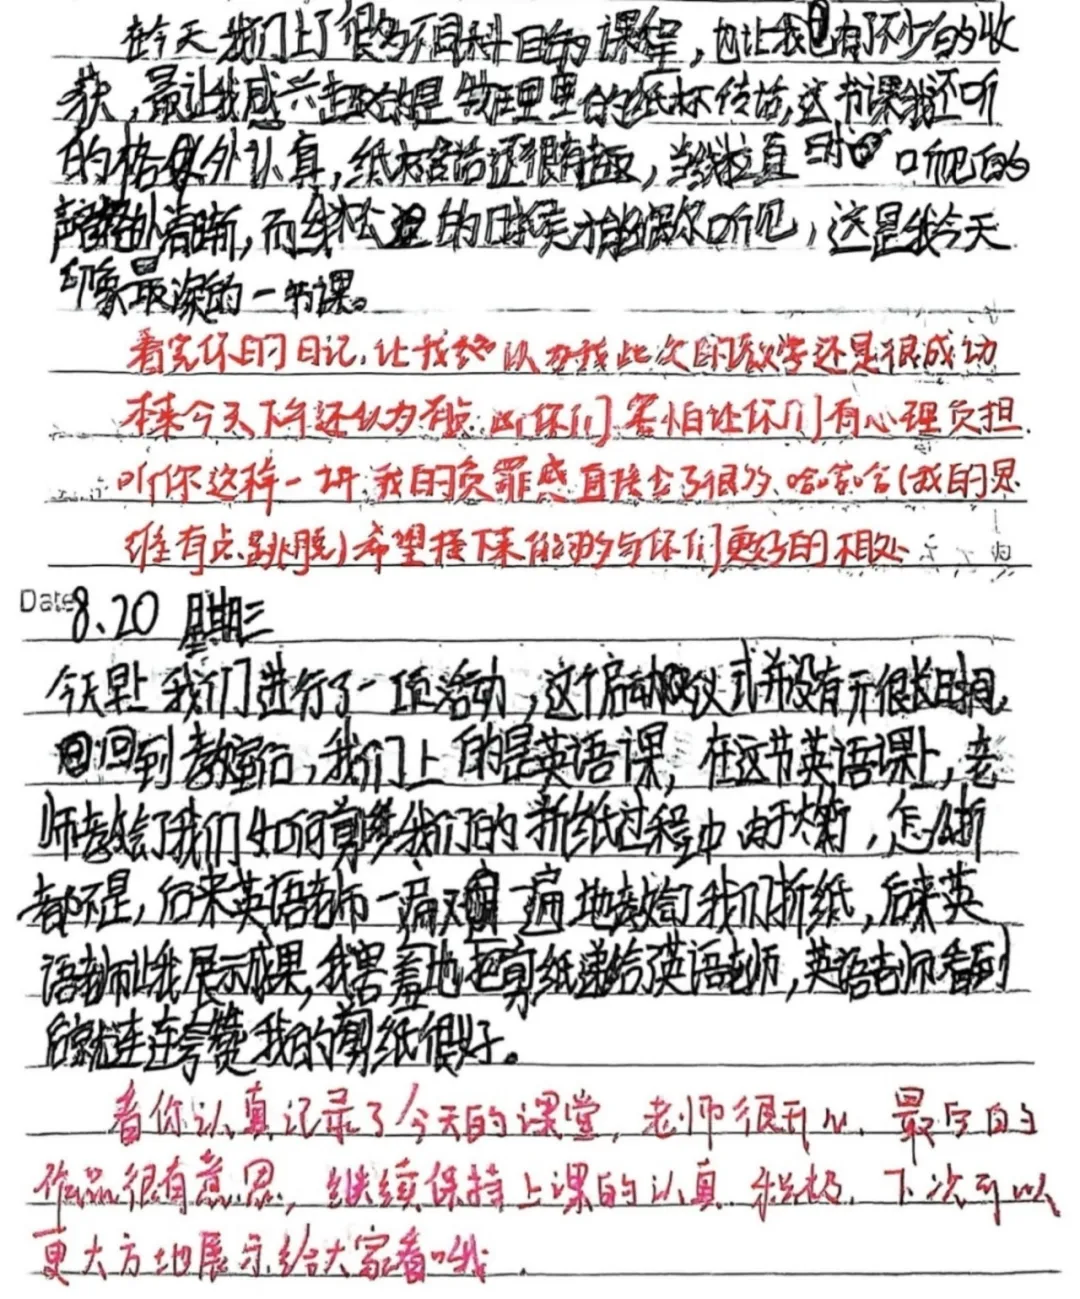 在今天我们上了很多不同科目的课程，也让我有了不少的收
获，最让我感兴趣的是物理里的纸杯传话，这节课我还听
的格外认真，纸杯传话还很有趣，当线拉直时听见的
声音格外清晰，而线松的时候才能偶尔听见，这是我今天
印象最深的一节课。
看完你的日记，让我 认为我此次的教学还是很成功
本来今天下午还以为有点凶你们 害怕让你们有心理负担
听你这样一讲，我的负罪感直接会了很多，哈哈哈（我的思
维有点跳脱）希望接下来能够与你们更好的相处
Date
8、20 星期三
今天早上我们进行了一项活动，这个启动仪式并没有开很长时间，
回到教室后，我们上的是英语课，在这节英语课上，老
师教给了我们如何剪 我们的折纸过程中由于太 ，怎么折
都不是，后来英语老师一遍又一遍地教我们折纸，后来英
语老师让我展示成果，我害羞地把剪纸递给了英语老师，英语老师看到
后就连连夸赞我的剪纸很好。
看你认真记录了今天的课堂，老师很开心，最后的
作品很有意思，继续保持上课的认真 积极，下次可以
更大方地展示给大家看哦